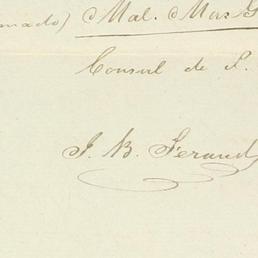 mado) Mal. Mur G
Consul de S.
J. B. Feraud